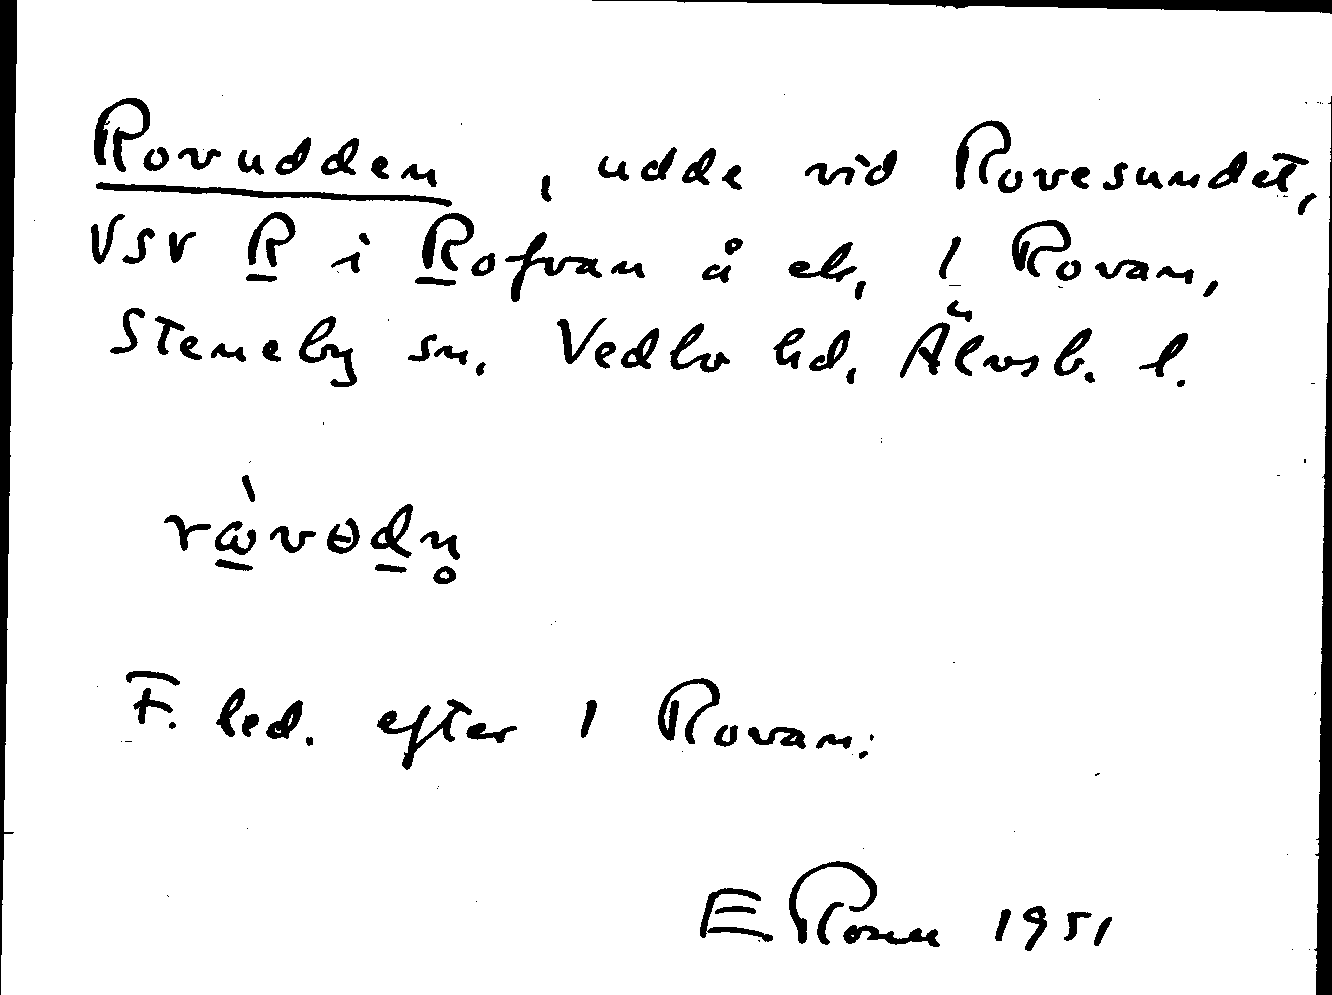 Rovudden, udde vid Rovesundet,
VSV R i Rofvan å ek, 1 Rovan,
Steneby sn, Vedbo hd, Älvsb. l.
rὼvɵdn̥
F. led. efter 1 Rovan.
E. Rosén 1951